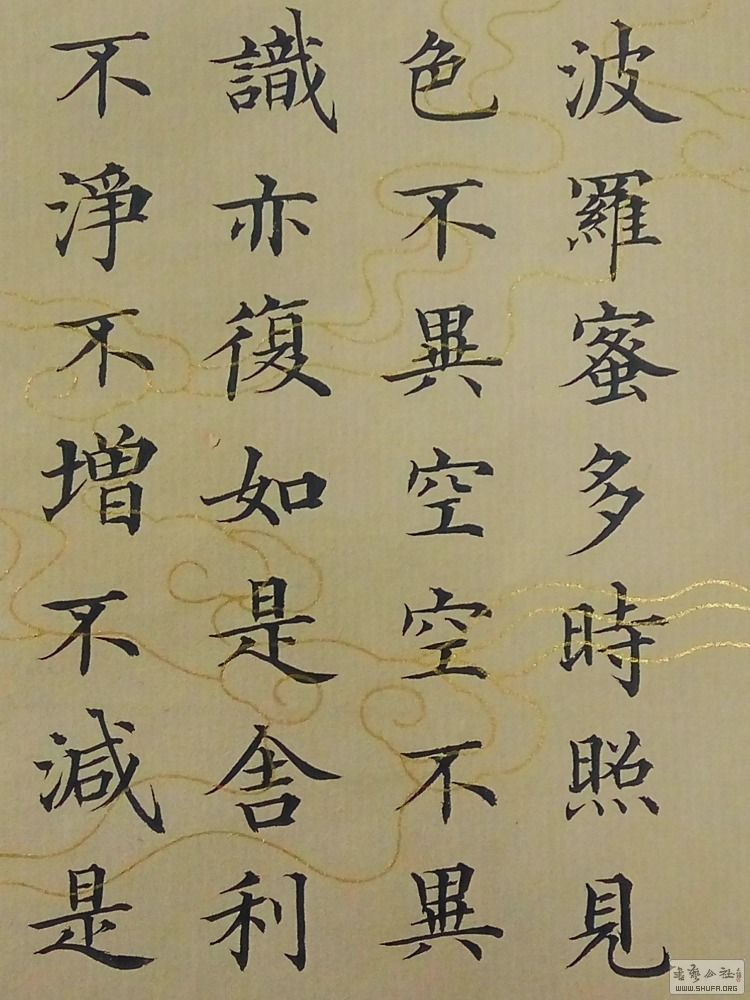 波羅蜜多時照見
色不異空空不異
識亦復如是舍利
不淨不增不減是
WWW.SHUFA.ORG